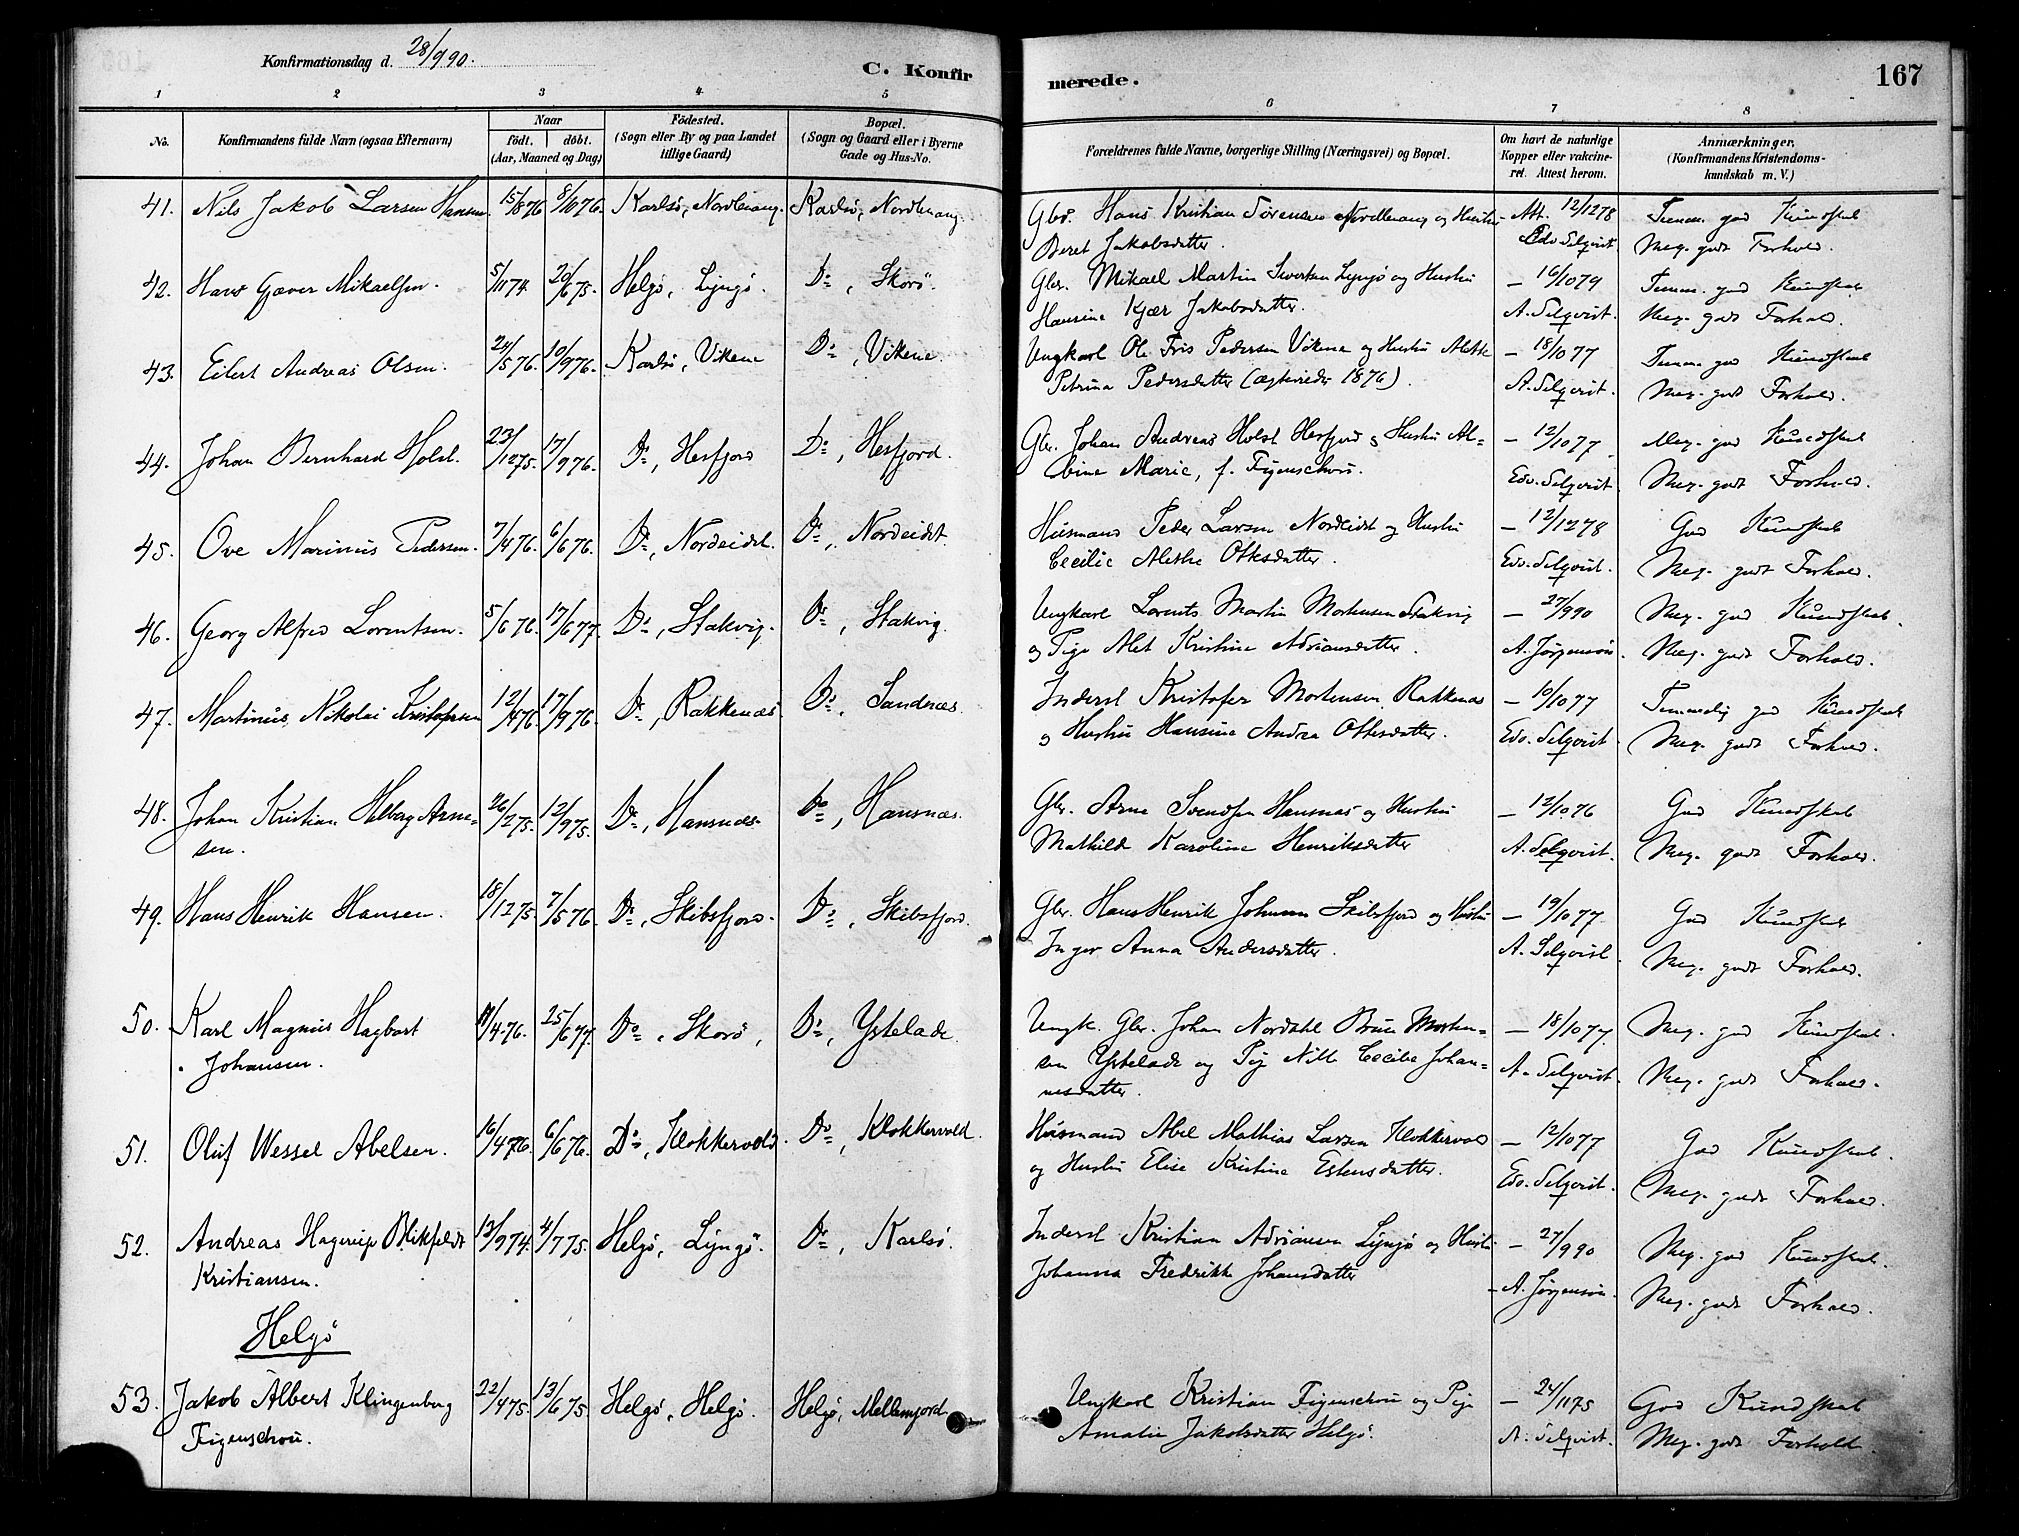 Konfirmationsdag d. 28/9 90.
C. Konfirmerede.
167
1 2 3 4 5 6 7 8
No. Konfirmandens fulde Navn (ogsaa Efternavn) Naar födt. döbt. (Aar, Maaned og Dag) Födested. (Sogn eller By og paa Landet tillige Gaard) Bopæl. (Sogn og Gaard eller i Byerne Gade og Hus-No. Forældrenes fulde Navne, borgerlige Stilling (Næringsvei) og Bopæl. Om havt de naturlige Kopper eller vakcineret. Attest herom. Anmærkninger. (Konfirmandens Kristendomskundskab m. V.)
41. Nils Jakob Larsen Hansen 15/8 76 8/10 76. Karlsö, Nordlenang. Karlsö, Nordlenang. Gbr. Hans Kristian Sörensen Nordlenang og Hustru Att. 12/12 78 Temm. god Kundskab
Beret Jakobsdatter. Edv. Selqvist. Meg. godt Forhold.
42. Hans Gæver Mikaelsen. 5/11 74. 20/6 75. Helgö, Lyngö. Do, Skorö. Gbr. Mikael Martin Sivertsen Lyngö og Hustru — 16/10 79 Temm. god Kundskab
Hansine Kjær Jakobsdatter. A. Selqvist. Meg. godt Forhold.
43. Eilert Andreas Olsen. 24/5 76. 10/9 76. Karlsö, Vikene Do, Vikene. Ungkarl Ole Fris Pedersen Vikene og Hustru Alette — 18/10 77 Temm. god Kundskab
Petrina Pedersdatter (ægteviede 1876). A. Selqvist. Meg. godt Forhold.
44. Johan Bernhard Holst. 23/12 75. 17/9 76. Do, Hesfjord Do, Hesfjord. Gbr. Johan Andreas Holst Hesfjord & Hustru Al= — 12/10 77 Meg. god Kundskab
bine Marie, f. Figenschou. Edv. Selqvist. Meg. godt Forhold.
45. Ove Marinius Pedersen. 7/4 76. 6/6 76. Do, Nordeidet. Do, Nordeidet. Husmand Peder Larsen Nordeidet og Hustru — 12/12 78 God Kundskab
Cecilie Alethe Ottesdatter. Edv. Selqvist. Meg. godt Forhold.
46. Georg Alfred Lorentsen. 5/6 76. 17/6 77. Do, Stakvig. Do, Stakvig. Ungkarl Lorents Martin Mortensen Stakvig — 27/9 90 Meg. god Kundskab.
og Pige Alet Kristine Adriansdatter. A. Jørgensøn. Meg. godt Forhold.
47. Martinus Nikolai Kristofersen 12/4 76. 17/9 76. Do, Rakkenæs Do, Sandnæs. Inderst Kristofer Mortensen Rakkenæs — 10/10 77 Temmelig god Kundskab
og Hustru Hansine Andrea Ottesdatter. Edv. Selqvist. Meg. godt Forhold.
48. Johan Kristian Helberg Arne= 26/2 75. 12/9 75. Do, Hansnæs. Do, Hansnæs. Gbr. Arne Svendsen Hansnæs og Hustru — 12/10 76 God Kundskab
sen. Mathilde Karoline Henriksdatter A. Selqvist. Meg. godt Forhold.
49. Hans Henrik Hansen. 18/12 75. 7/5 76. Do, Skibsfjord. Do, Skibsfjord. Gbr. Hans Henrik Johnsen Skibsfjord og Hustru — 19/10 77. God Kundskab
Inger Anna Andersdatter. A. Selqvist. Meg. godt Forhold.
50. Karl Magnus Hagbart /4 76. 25/6 77. Do, Skorö, Do, Ystelade. Ungk. Gbr. Johan Nordahl Bruun Morten= — 18/10 77. Meg. god Kundskab.
Johansen. sen Ystelade og Pige Cecilie Johan= A. Selqvist. Meg. godt Forhold.
nesdatter.
51. Oluf Wessel Abelsen. 16/4 76. 6/6 76. Do, Klokkervold. Do, Klokkervold. Husmand Abel Mathias Larsen Klokkervold — 12/10 77 God Kundskab.
og Hustru Elise Kristine Estensdatter. Edv. Selqvist. Meg. godt Forhold.
52. Andreas Hagerup Blikfeldt 13/9 74. 4/7 75. Helgö, Lyngö. Do, Karlsö. Inderst Kristian Adriansen Lyngö og Hustru — 27/9 90 Meg. god Kundskab.
Kristiansen. Johanna Fredrikke Johansdatter A. Jørgensøn. Meg. godt Forhold.
Helgö
53. Jakob Albert Klingenberg 22/4 75. 13/6 75. Helgö, Helgö. Helgö, Mellemjord. Ungkarl Kristian Figenschou og Pige — 24/11 75 God Kundskab
Figenschou. Amalie Jakobsdatter Helgö. A. Selqvist. Meg. godt Forhold.